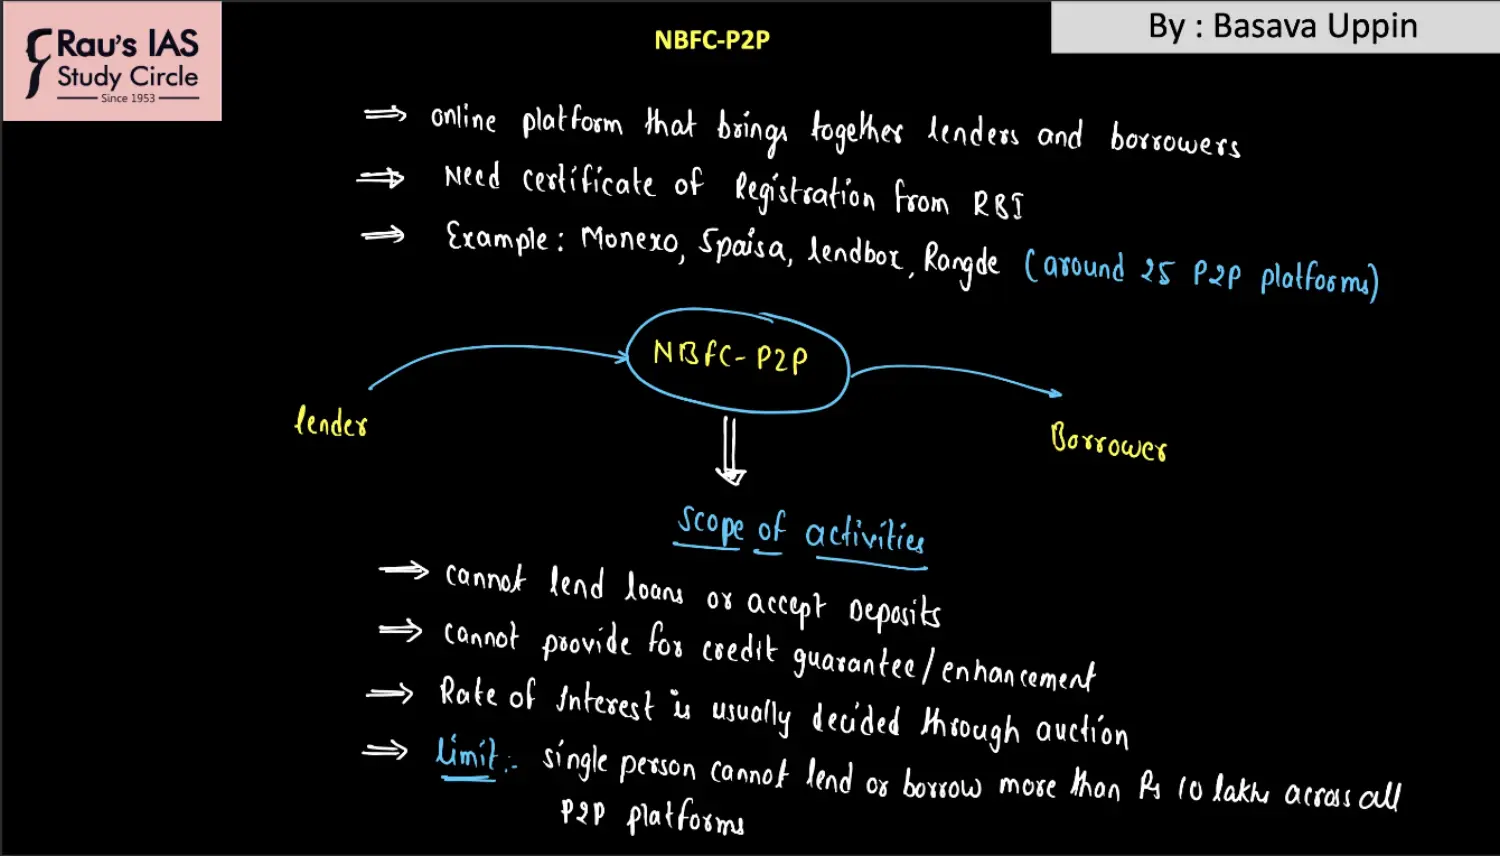 Rau's IAS
Study Circle
Since 1953
NBFC-P2P
By : Basava Uppin
⇒ online platform that brings together lenders and borrowers
⇒ Need certificate of Registration from RBI
⇒ Example: Monexo, 5paisa, lendbox, Rangde (around 25 P2P platforms)
NBFC-P2P
lender
Borrower
scope of activities
⇒ cannot lend loans or accept Deposits
⇒ cannot provide for credit guarantee/enhancement
⇒ Rate of Interest is usually decided through auction
⇒ limit:- single person cannot lend or borrow more than Rs 10 lakhs across all
P2P platforms